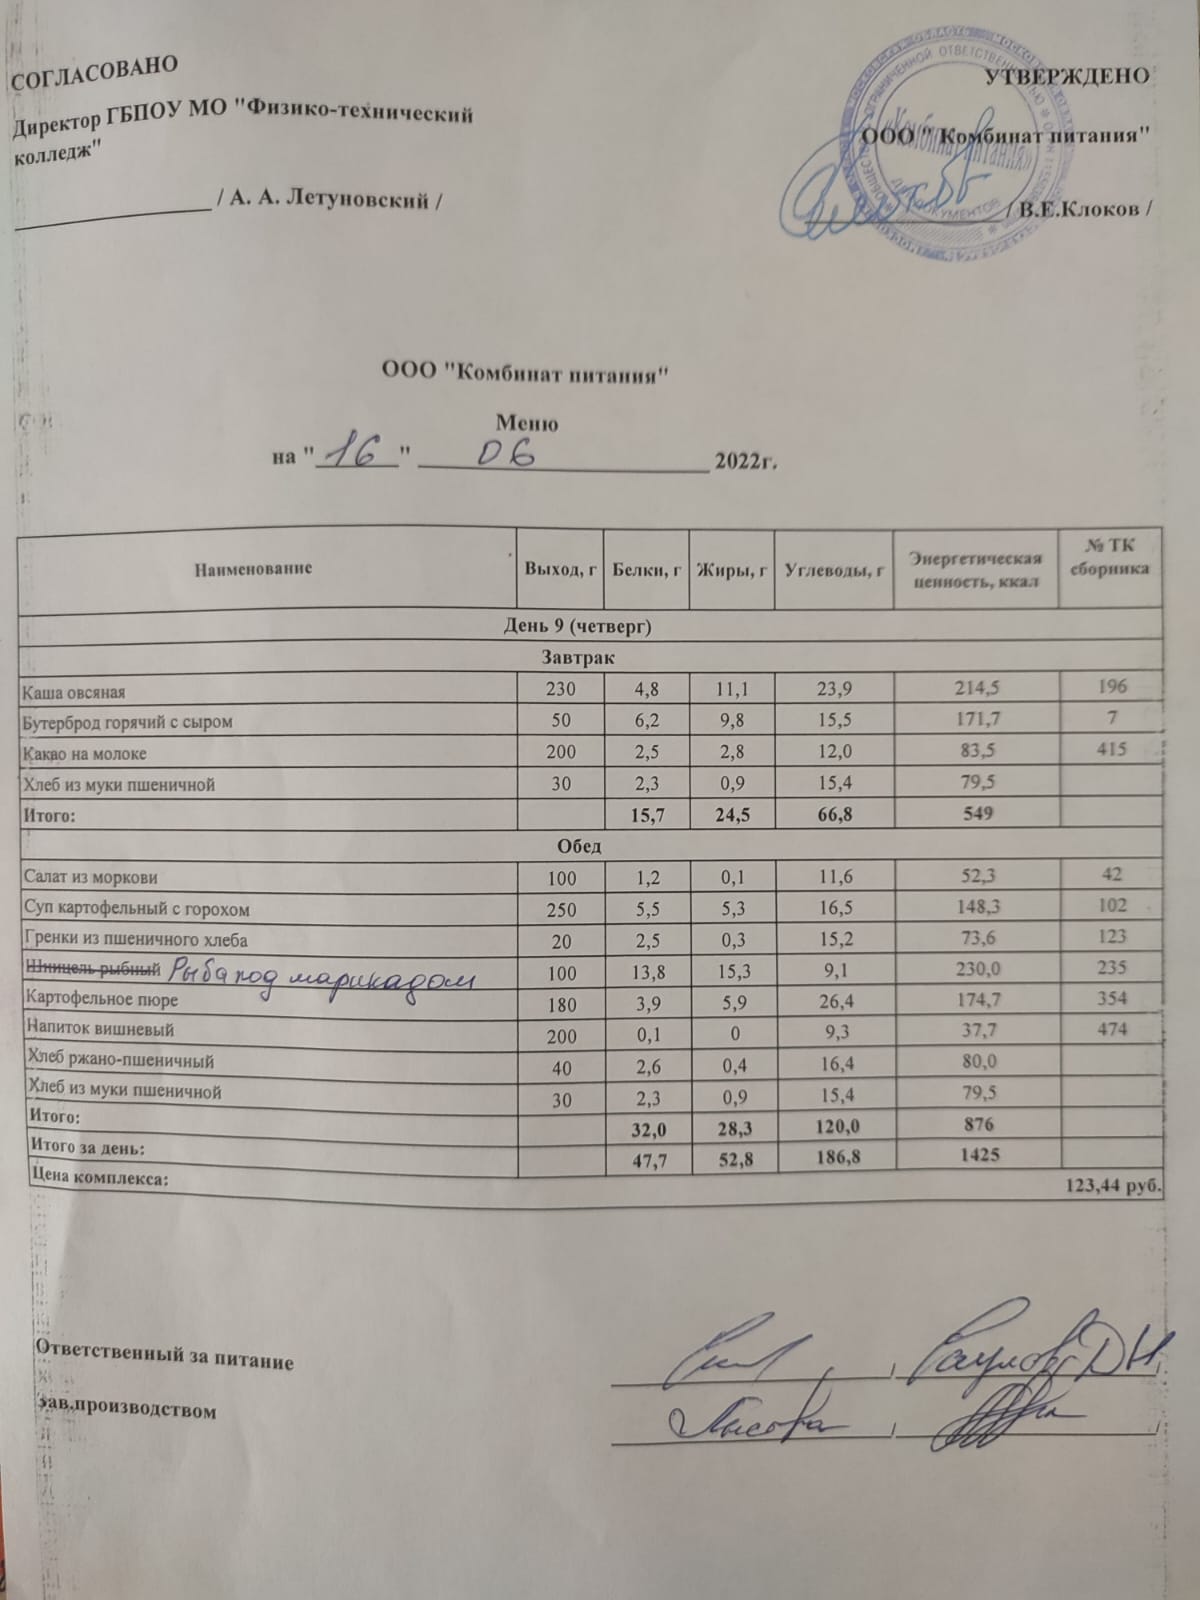 СОГЛАСОВАНО
Директор ГБПОУ МО "Физико-технический
колледж"
/ А. А. Летуновский /
УТВЕРЖДЕНО
ООО " Комбинат питания"
/ В.Е.Клоков /
«Комбинат питания»
ДЛЯ ДОКУМЕНТОВ
ООО "Комбинат питания"
Меню
на " 16 " 06 2022г.
Наименование Выход, г Белки, г Жиры, г Углеводы, г Энергетическая ценность, ккал № ТК сборника
День 9 (четверг)
Завтрак
Каша овсяная 230 4,8 11,1 23,9 214,5 196
Бутерброд горячий с сыром 50 6,2 9,8 15,5 171,7 7
Какао на молоке 200 2,5 2,8 12,0 83,5 415
Хлеб из муки пшеничной 30 2,3 0,9 15,4 79,5
Итого: 15,7 24,5 66,8 549
Обед
Салат из моркови 100 1,2 0,1 11,6 52,3 42
Суп картофельный с горохом 250 5,5 5,3 16,5 148,3 102
Гренки из пшеничного хлеба 20 2,5 0,3 15,2 73,6 123
Шницель рыбный Рыба под марикадом 100 13,8 15,3 9,1 230,0 235
Картофельное пюре 180 3,9 5,9 26,4 174,7 354
Напиток вишневый 200 0,1 0 9,3 37,7 474
Хлеб ржано-пшеничный 40 2,6 0,4 16,4 80,0
Хлеб из муки пшеничной 30 2,3 0,9 15,4 79,5
Итого: 32,0 28,3 120,0 876
Итого за день: 47,7 52,8 186,8 1425
Цена комплекса: 123,44 руб.
Ответственный за питание
зав.производством